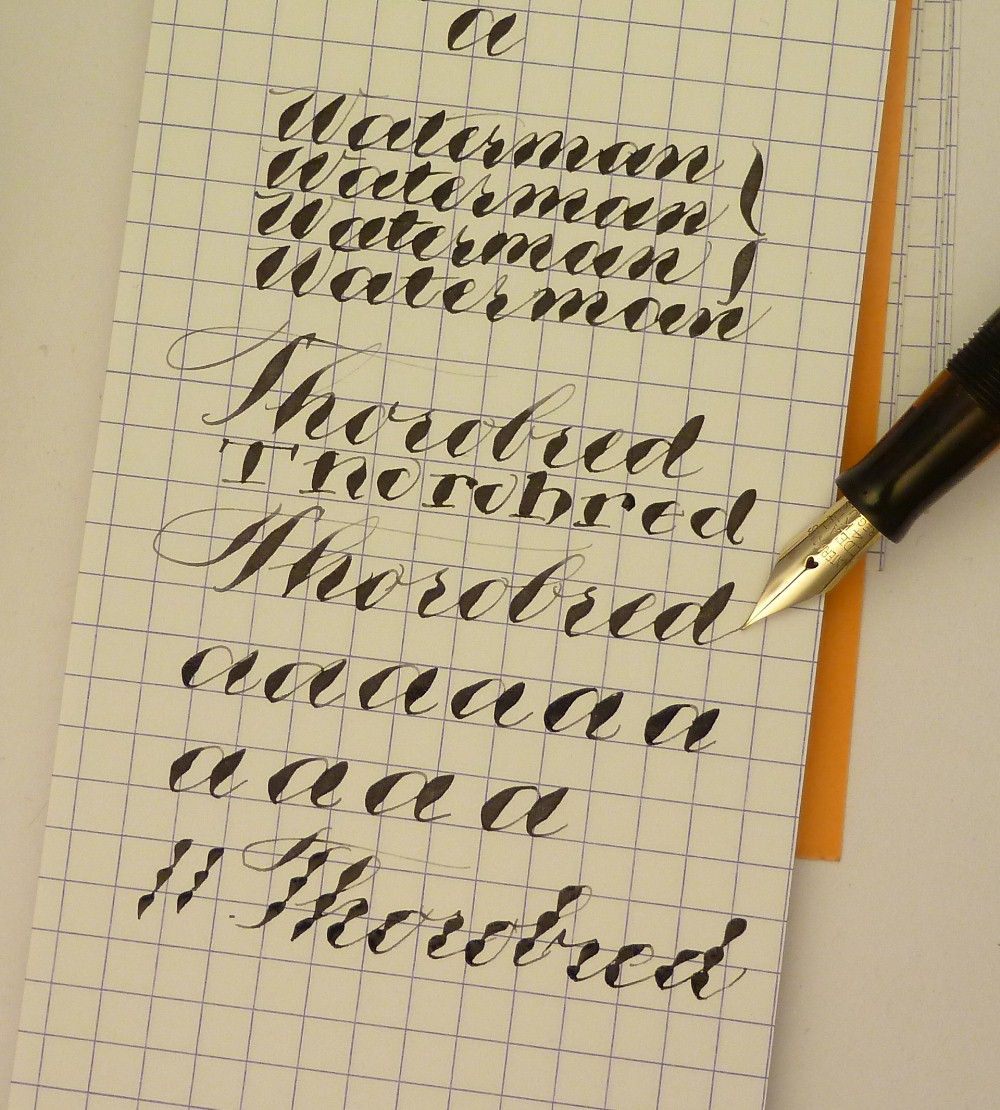 a
Waterman
Waterman
Waterman
Waterman
Thorobred
Thorobred
Thorobred
a a a a a a
a a a a
Thorobred